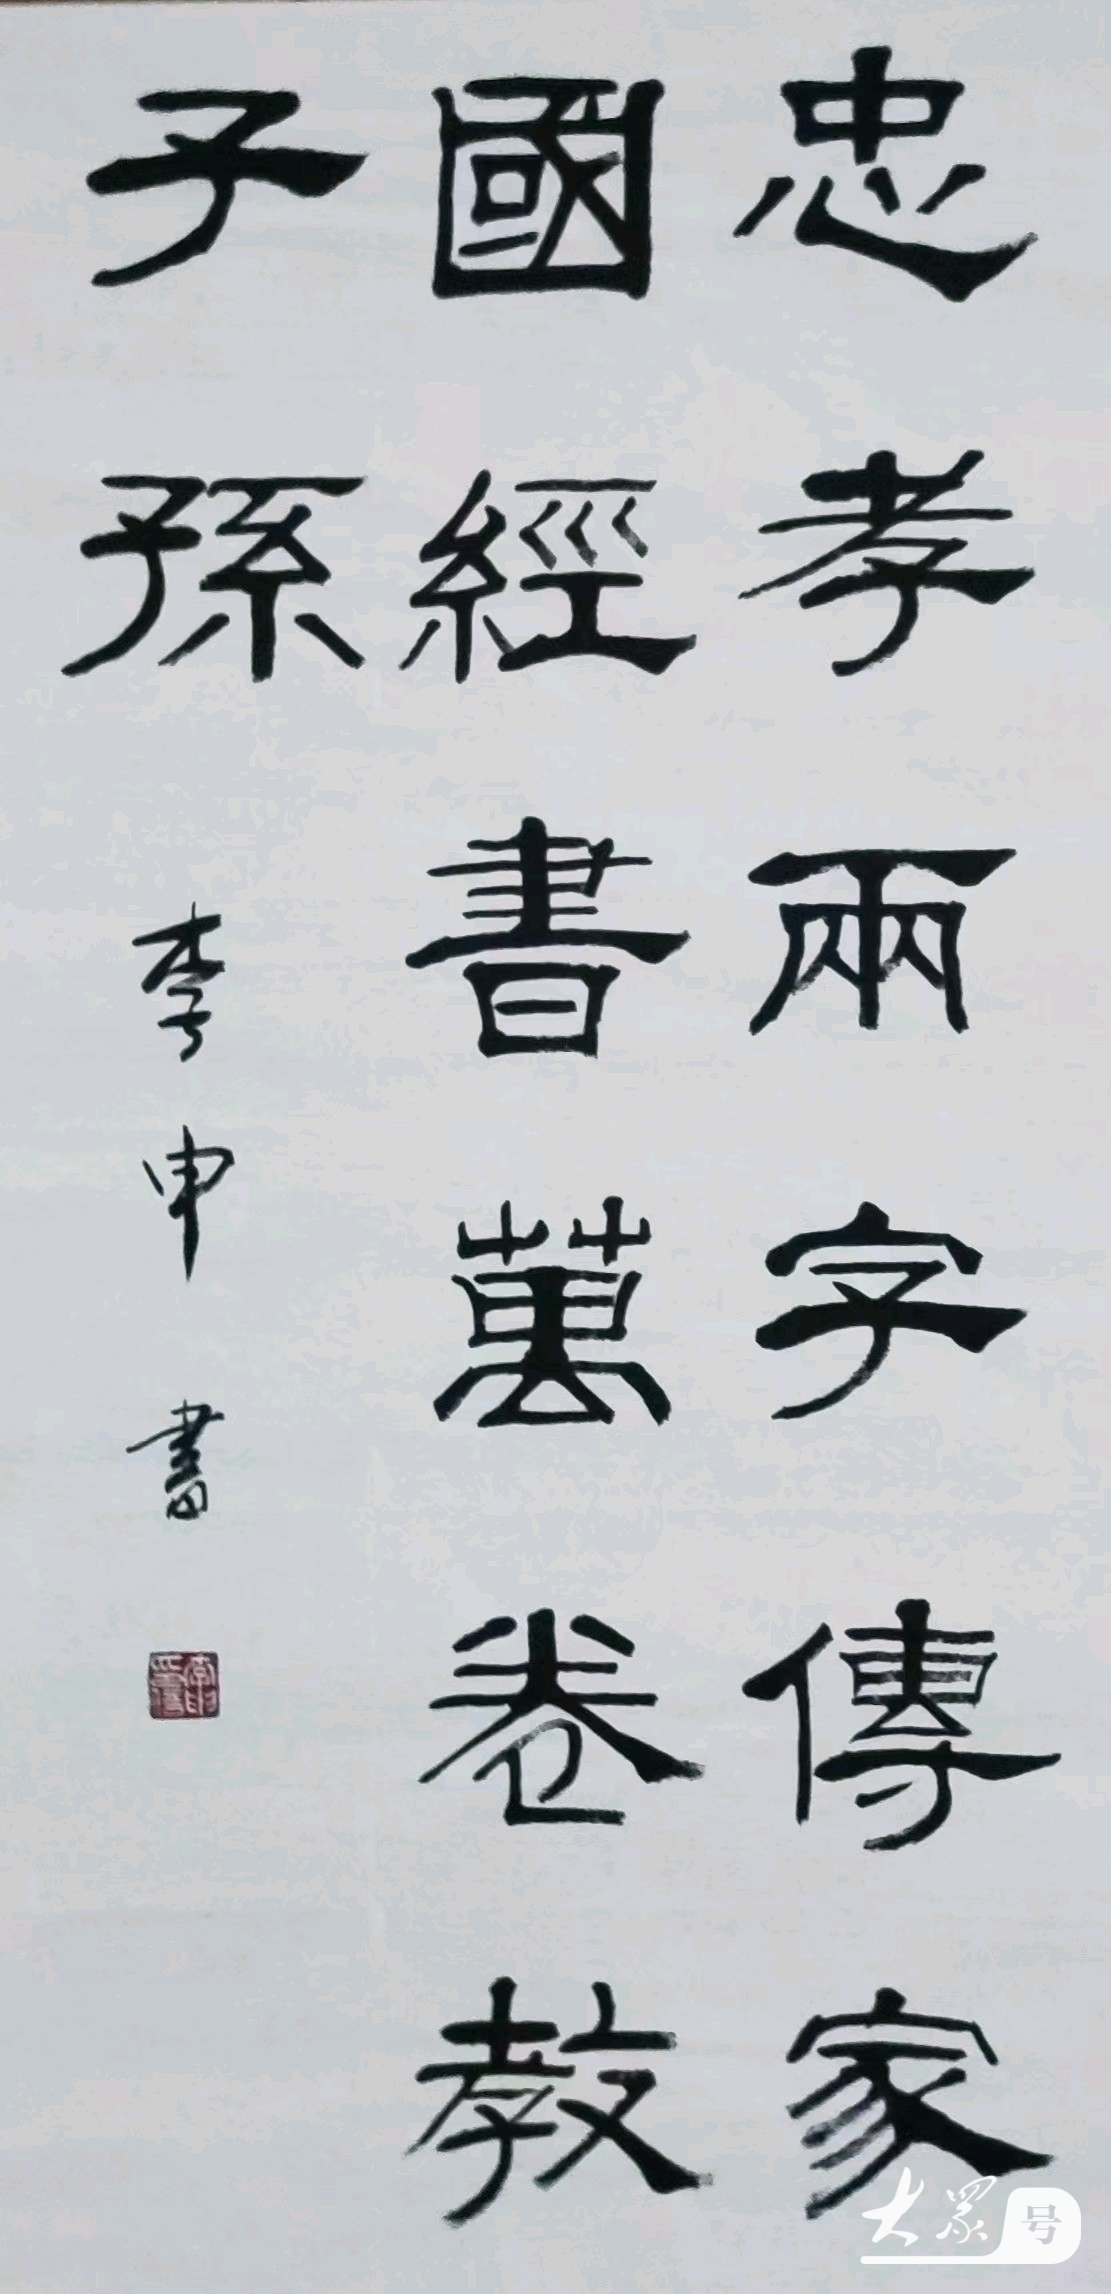 忠孝兩字傳家
國經書萬卷教
子孫
李申書
大眾号